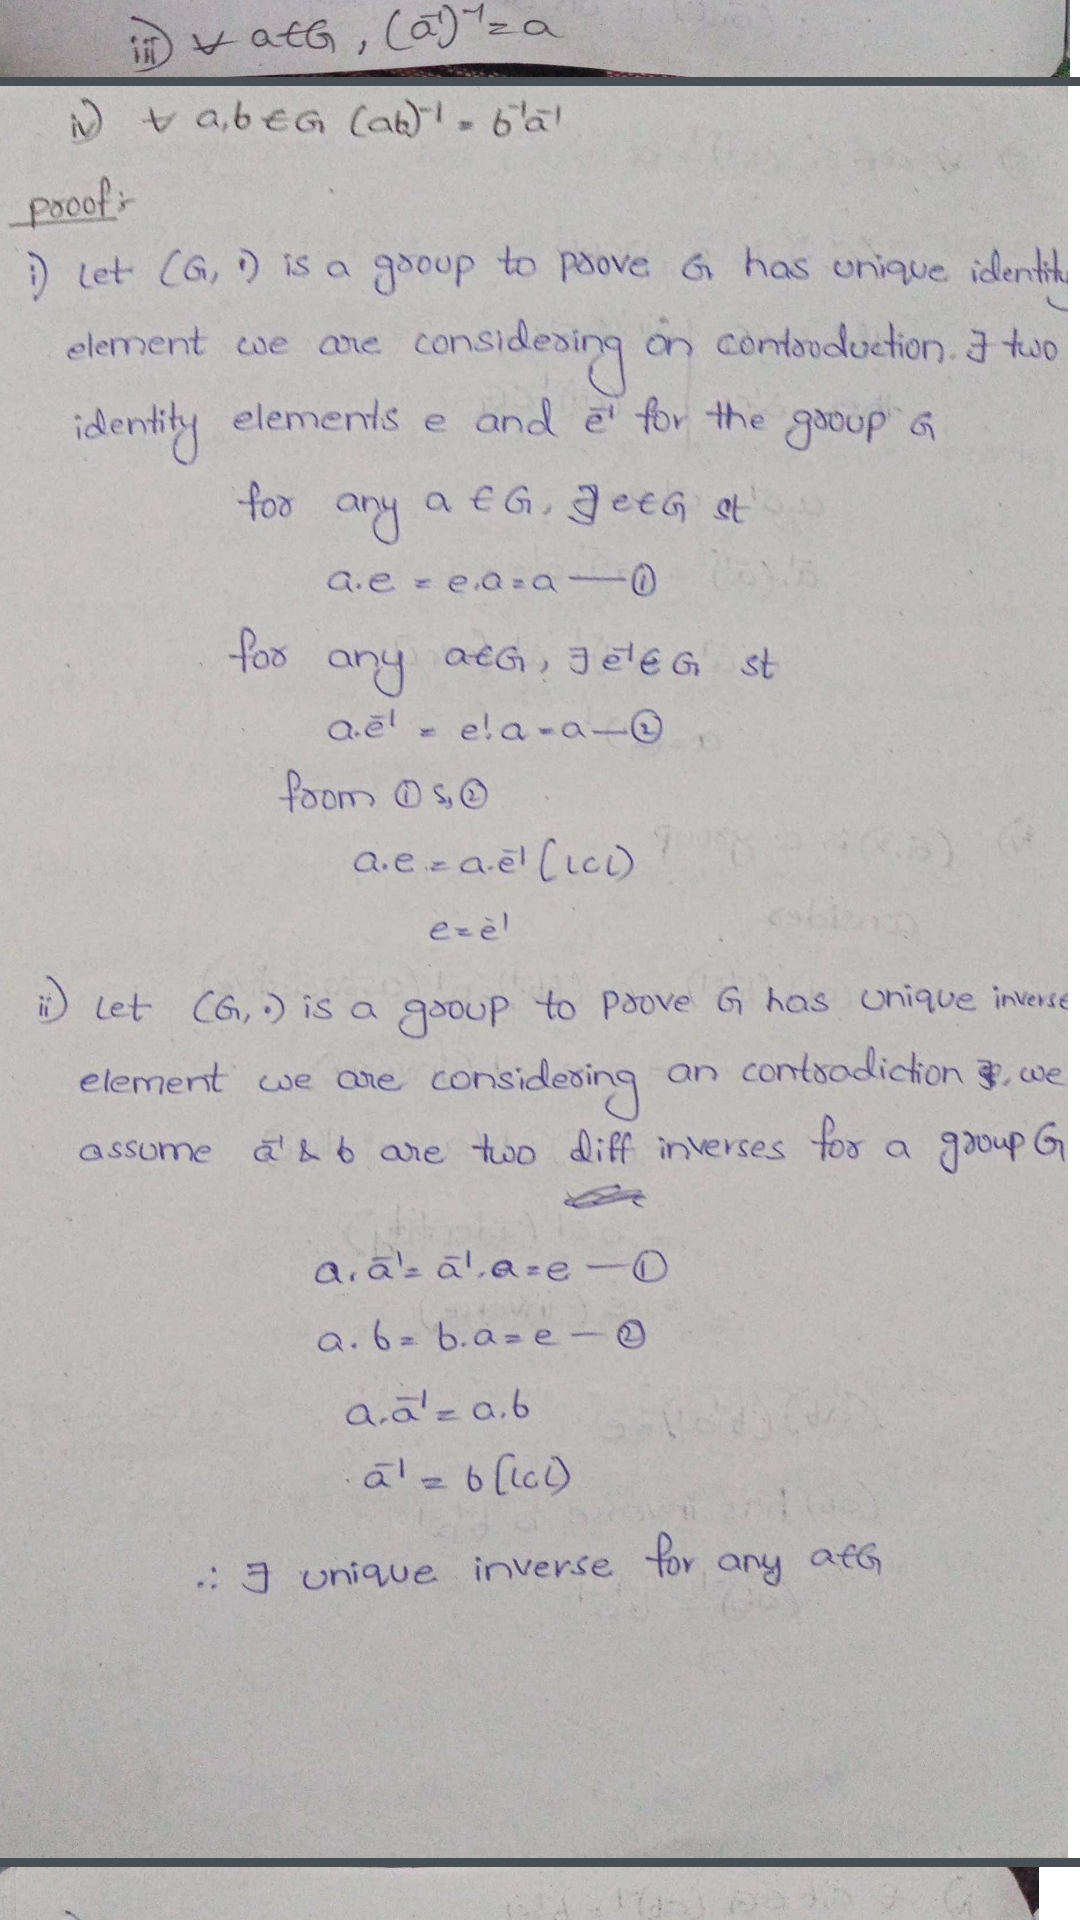 iii) ∀ a∈G, (a⁻¹)⁻¹ = a
iv) ∀ a,b ∈ G (ab)⁻¹ = b⁻¹a⁻¹
proof:-
i) Let (G, ·) is a group to prove G has unique identity
element we are considering on controduction. ∃ two
identity elements e and e⁻¹ for the group G
for any a ∈ G, ∃ e∈G st
a.e = e.a = a — ①
for any a∈G, ∃ e⁻¹∈G st
a.e⁻¹ = e!.a = a — ②
from ① & ②
a.e = a.e⁻¹ (LCL)
e = e⁻¹
ii) Let (G, ·) is a group to prove G has unique inverse
element we are considering an contradiction. we
assume a⁻¹ & b are two diff inverses for a group G
a.a⁻¹ = a⁻¹.a = e — ①
a.b = b.a = e — ②
a.a⁻¹ = a.b
a⁻¹ = b (LCL)
∴ ∃ unique inverse for any a∈G